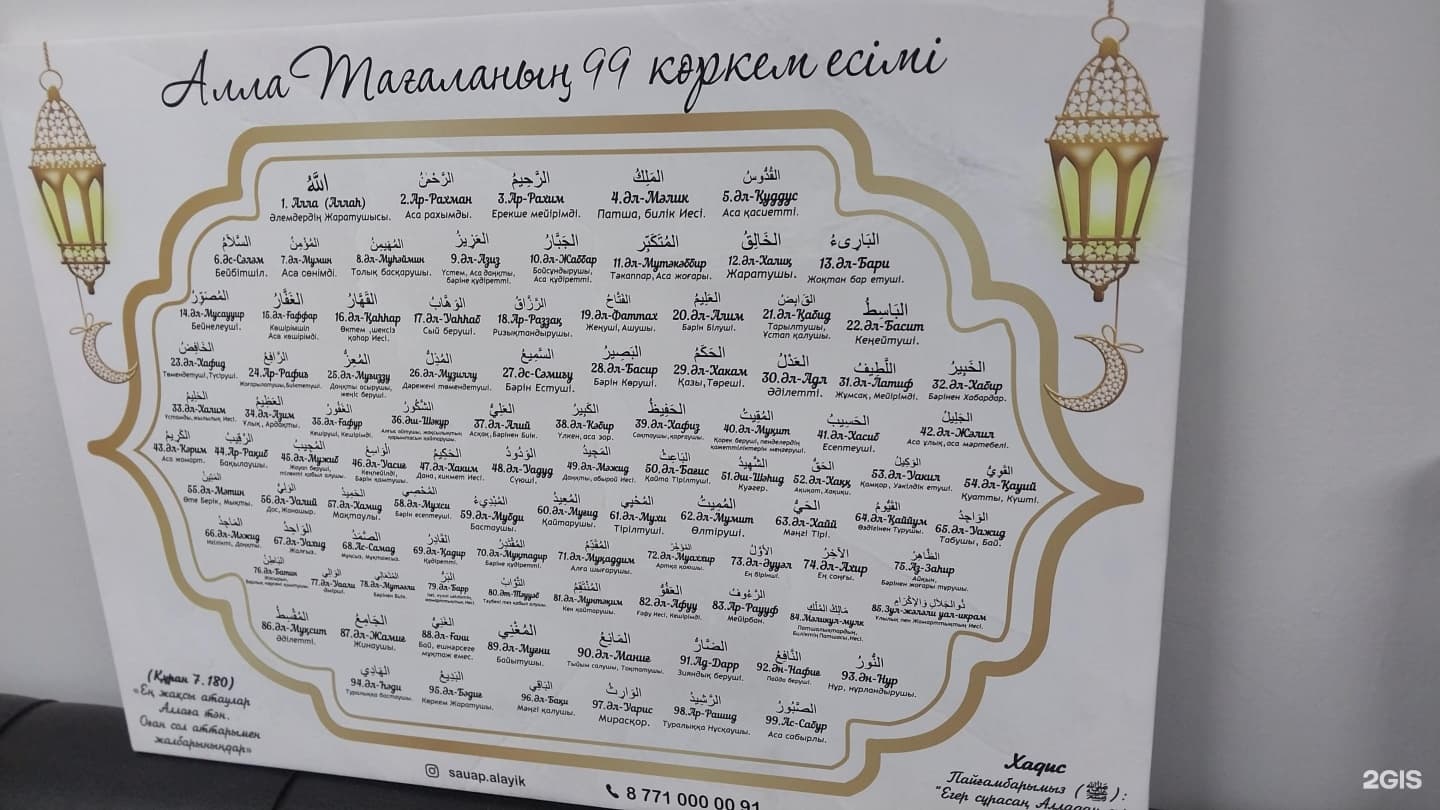 Алла Тағаланың 99 көркем есімі
اللَّهُ الرَّحْمٰنُ الرَّحِيمُ المَلِكُ القُدُّوسُ
1. Алла (Аллаһ) 2.Ар-Рахман 3.Ар-Рахим 4.Әл-Мәлик 5.Әл-Қуддус
Әлемдердің Жаратушысы. Аса рахымды. Ерекше мейірімді. Патша, билік Иесі. Аса қасиетті.
السَّلَامُ المُؤْمِنُ المُهَيْمِنُ العَزِيزُ الجَبَّارُ المُتَكَبِّرُ الخَالِقُ البَارِىءُ
6.Әс-Сәләм 7.Әл-Мумин 8.Әл-Муһәймин 9.Әл-Азиз 10.Әл-Жаббар 11.Әл-Мутәкәббир 12.Әл-Халиқ 13.Әл-Бари
Бейбітшіл. Аса сенімді. Толық басқарушы. Үстем, Аса даңқты, бәріне құдіретті. Бойсұндырушы, Аса құдіретті. Тәкаппар, Аса жоғары. Жаратушы. Жоқтан бар етуші.
المُصَوِّرُ الغَفَّارُ القَهَّارُ الوَهَّابُ الرَّزَّاقُ الفَتَّاحُ العَلِيمُ القَابِضُ البَاسِطُ
14.Әл-Мусаууир 15.Әл-Ғаффар 16.Әл-Қаһһар 17.Әл-Уаһһаб 18.Ар-Раззақ 19.Әл-Фаттах 20.Әл-Алим 21.Әл-Қабид 22.Әл-Басит
Бейнелеуші. Кешірімшіл Аса кешірімді. Өктем ,шексіз қаһар Иесі. Сый беруші. Ризықтандырушы. Жеңуші, Ашушы. Бәрін Білуші. Тарылтушы, Ұстап қалушы. Кеңейтуші.
الخَافِضُ الرَّافِعُ المُعِزُّ المُذِلُّ السَّمِيعُ البَصِيرُ الحَكَمُ العَدْلُ اللَّطِيفُ الخَبِيرُ
23.Әл-Хафид 24.Ар-Рафиъ 25.Әл-Муъиззу 26.Әл-Музиллу 27.Әс-Сәмиъу 28.Әл-Басир 29.Әл-Хакам 30.Әл-Адл 31.Әл-Латиф 32.Әл-Хабир
Төмендетуші,Түсіруші. Жоғарылатушы,Биіктетуші. Даңқты асырушы, жеңіс беруші. Дәрежені төмендетуші. Бәрін Естуші. Бәрін Көруші. Қазы,Төреші. Әділетті. Жұмсақ, Мейірімді. Бәрінен Хабардар.
الحَلِيمُ العَظِيمُ الغَفُورُ الشَّكُورُ العَلِيُّ الكَبِيرُ الحَفِيظُ المُقِيتُ الحَسِيبُ الجَلِيلُ
33.Әл-Халим 34.Әл-Азим 35.Әл-Ғафур 36.Әш-Шәкур 37.Әл-Алий 38.Әл-Кәбир 39.Әл-Хафиз 40.Әл-Муқит 41.Әл-Хасиб 42.Әл-Жәлил
Ұстамды, жылылық Иесі. Ұлық, Ардақты. Кешіруші, Кешірімді. Асқақ,Бәрінен Биік. Үлкен, аса зор. Сақтаушы,қорғаушы. Қорек беруші,пенделердің қажеттіліктерін меңгеруші. Есептеуші. Аса ұлық,аса мәртебелі.
الكَرِيمُ الرَّقِيبُ المُجِيبُ الوَاسِعُ الحَكِيمُ الوَدُودُ المَجِيدُ البَاعِثُ الشَّهِيدُ الحَقُّ الوَكِيلُ القَوِيُّ
43.Әл-Кәрим 44.Ар-Рақиб 45.Әл-Мужиб 46.Әл-Уасиъ 47.Әл-Хаким 48.Әл-Уәдуд 49.Әл-Мәжид 50.Әл-Бағис 51.Әш-Шәһид 52.Әл-Хаққ 53.Әл-Уакил 54.Әл-Қауий
Аса жомарт. Бақылаушы. Кеңейіңді, Бәрін қамтушы. Дана, хикмет Иесі. Сүюші. Даңқты, абырой Иесі. Қайта Тірілтуші. Куәгер. Ақиқат, Хақиқи. Қамқор, Уәкілдік етуші. Қуатты, Күшті.
المَتِينُ الوَلِيُّ الحَمِيدُ المُحْصِي المُبْدِىءُ المُعِيدُ المُحْيِي المُمِيتُ الحَيُّ القَيُّومُ الوَاجِدُ
55.Әл-Мәтин 56.Әл-Уәлий 57.Әл-Хамид 58.Әл-Мухси 59.Әл-Мубди 60.Әл-Муъид 61.Әл-Мухи 62.Әл-Мумит 63.Әл-Хайй 64.Әл-Қаййум 65.Әл-Уажид
Өте Берік, Мықты. Дос, Жанашыр. Мақтаулы. Бәрін есептеуші. Бастаушы. Қайтарушы. Тірілтуші. Өлтіруші. Мәңгі Тірі. Өздігінен Тұрушы. Табушы, Бай.
المَاجِدُ الوَاحِدُ الصَّمَدُ القَادِرُ المُقْتَدِرُ المُقَدِّمُ المُؤَخِّرُ الأَوَّلُ الآخِرُ الظَّاهِرُ
66.Әл-Мәжид 67.Әл-Уахид 68.Ас-Самад 69.Әл-Қадир 70.Әл-Муқтадир 71.Әл-Муқаддим 72.Әл-Муаххир 73.Әл-Әууәл 74.Әл-Ахир 75.Аз-Заһир
Иелікті, Даңқты. Жалғыз. Мұңсыз, Мұқтажсыз. Құдіретті. Бәріне құдіретті. Алға шығарушы. Артқа қоюшы. Ең бірінші. Ең соңғы. Айқын, Бәрінен жоғары тұрушы.
البَاطِنُ الوَالِي المُتَعَالِي البَرُّ التَّوَّابُ المُنْتَقِمُ العَفُوُّ الرَّءُوفُ مَالِكُ المُلْكِ ذُو الجَلَالِ وَالإِكْرَامِ
76.Әл-Батин 77.Әл-Уәли 78.Әл-Мутәъли 79.Әл-Барр 80.Әт-Тәууәб 81.Әл-Мунтәқим 82.Әл-Афуу 83.Ар-Раууф 84.Мәликул-мулк 85.Зул-жәләли уәл-икрам
Әмірші. Бәрінен Биік. Тәубені көп қабыл алушы. Кек қайтарушы. Ғафу Иесі, Кешірімді. Мейірбан. Патшалықтардың, Биліктің Патшасы,Иесі. Ұлылық пен Жомарттықтың Иесі.
المُقْسِطُ الجَامِعُ الغَنِيُّ المُغْنِي المَانِعُ الضَّارُّ النَّافِعُ النُّورُ
86.Әл-Муқсит 87.Әл-Жамиғ 88.Әл-Ғани 89.Әл-Муғни 90.Әл-Маниғ 91.Ад-Дарр 92.Ән-Нафиғ 93.Ән-Нур
Әділетті. Жинаушы. Бай, ешнәрсеге мұқтаж емес. Байытушы. Тыйым салушы, Тоқтатушы. Зияндық беруші. Пайда беруші. Нұр, нұрландырушы.
الهَادِي البَدِيعُ البَاقِي الوَارِثُ الرَّشِيدُ الصَّبُورُ
94.Әл-Һәди 95.Әл-Бәдиғ 96.Әл-Бақи 97.Әл-Уарис 98.Ар-Рашид 99.Ас-Сабур
Тұралыққа бастаушы. Көркем Жаратушы. Мәңгі қалушы. Мирасқор. Тұралыққа Нұсқаушы. Аса сабырлы.
(Құран 7.180)
«Ең жақсы атаулар
Аллаға тән.
Оған сол аттарымен
жалбарыныңдар»
sauap.alayik
8 771 000 00 91
Хадис
Пайғамбарымыз (ﷺ):
"Егер сұрасаң Алладан
2GIS